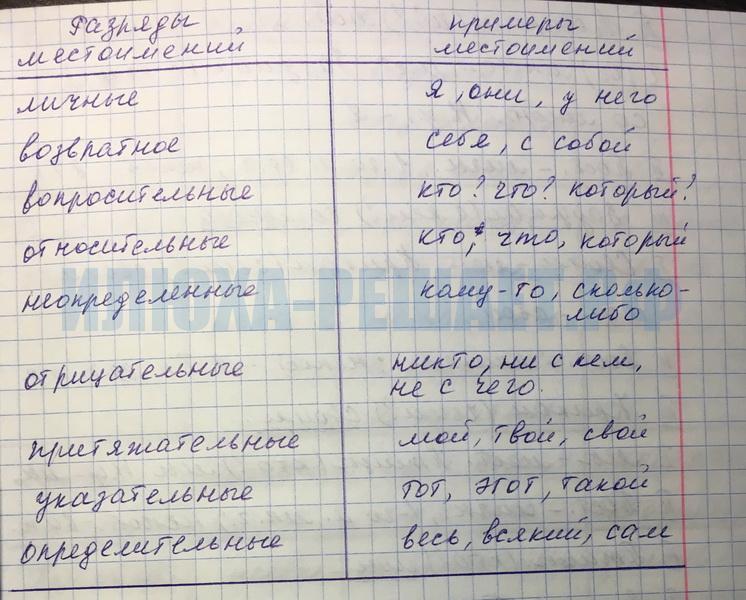 Разряды местоимений
примеры местоимений
личные
я, они, у него
возвратное
себя, с собой
вопросительные
кто? что? который?
относительные
кто, что, который
ИЛЮХА-РЕШАЕТ.РФ
неопределенные
кому-то, сколько-
либо
отрицательные
никто, ни с кем,
не с чего.
притяжательные
мой, твой, свой
указательные
тот, этот, такой
определительные
весь, всякий, сам